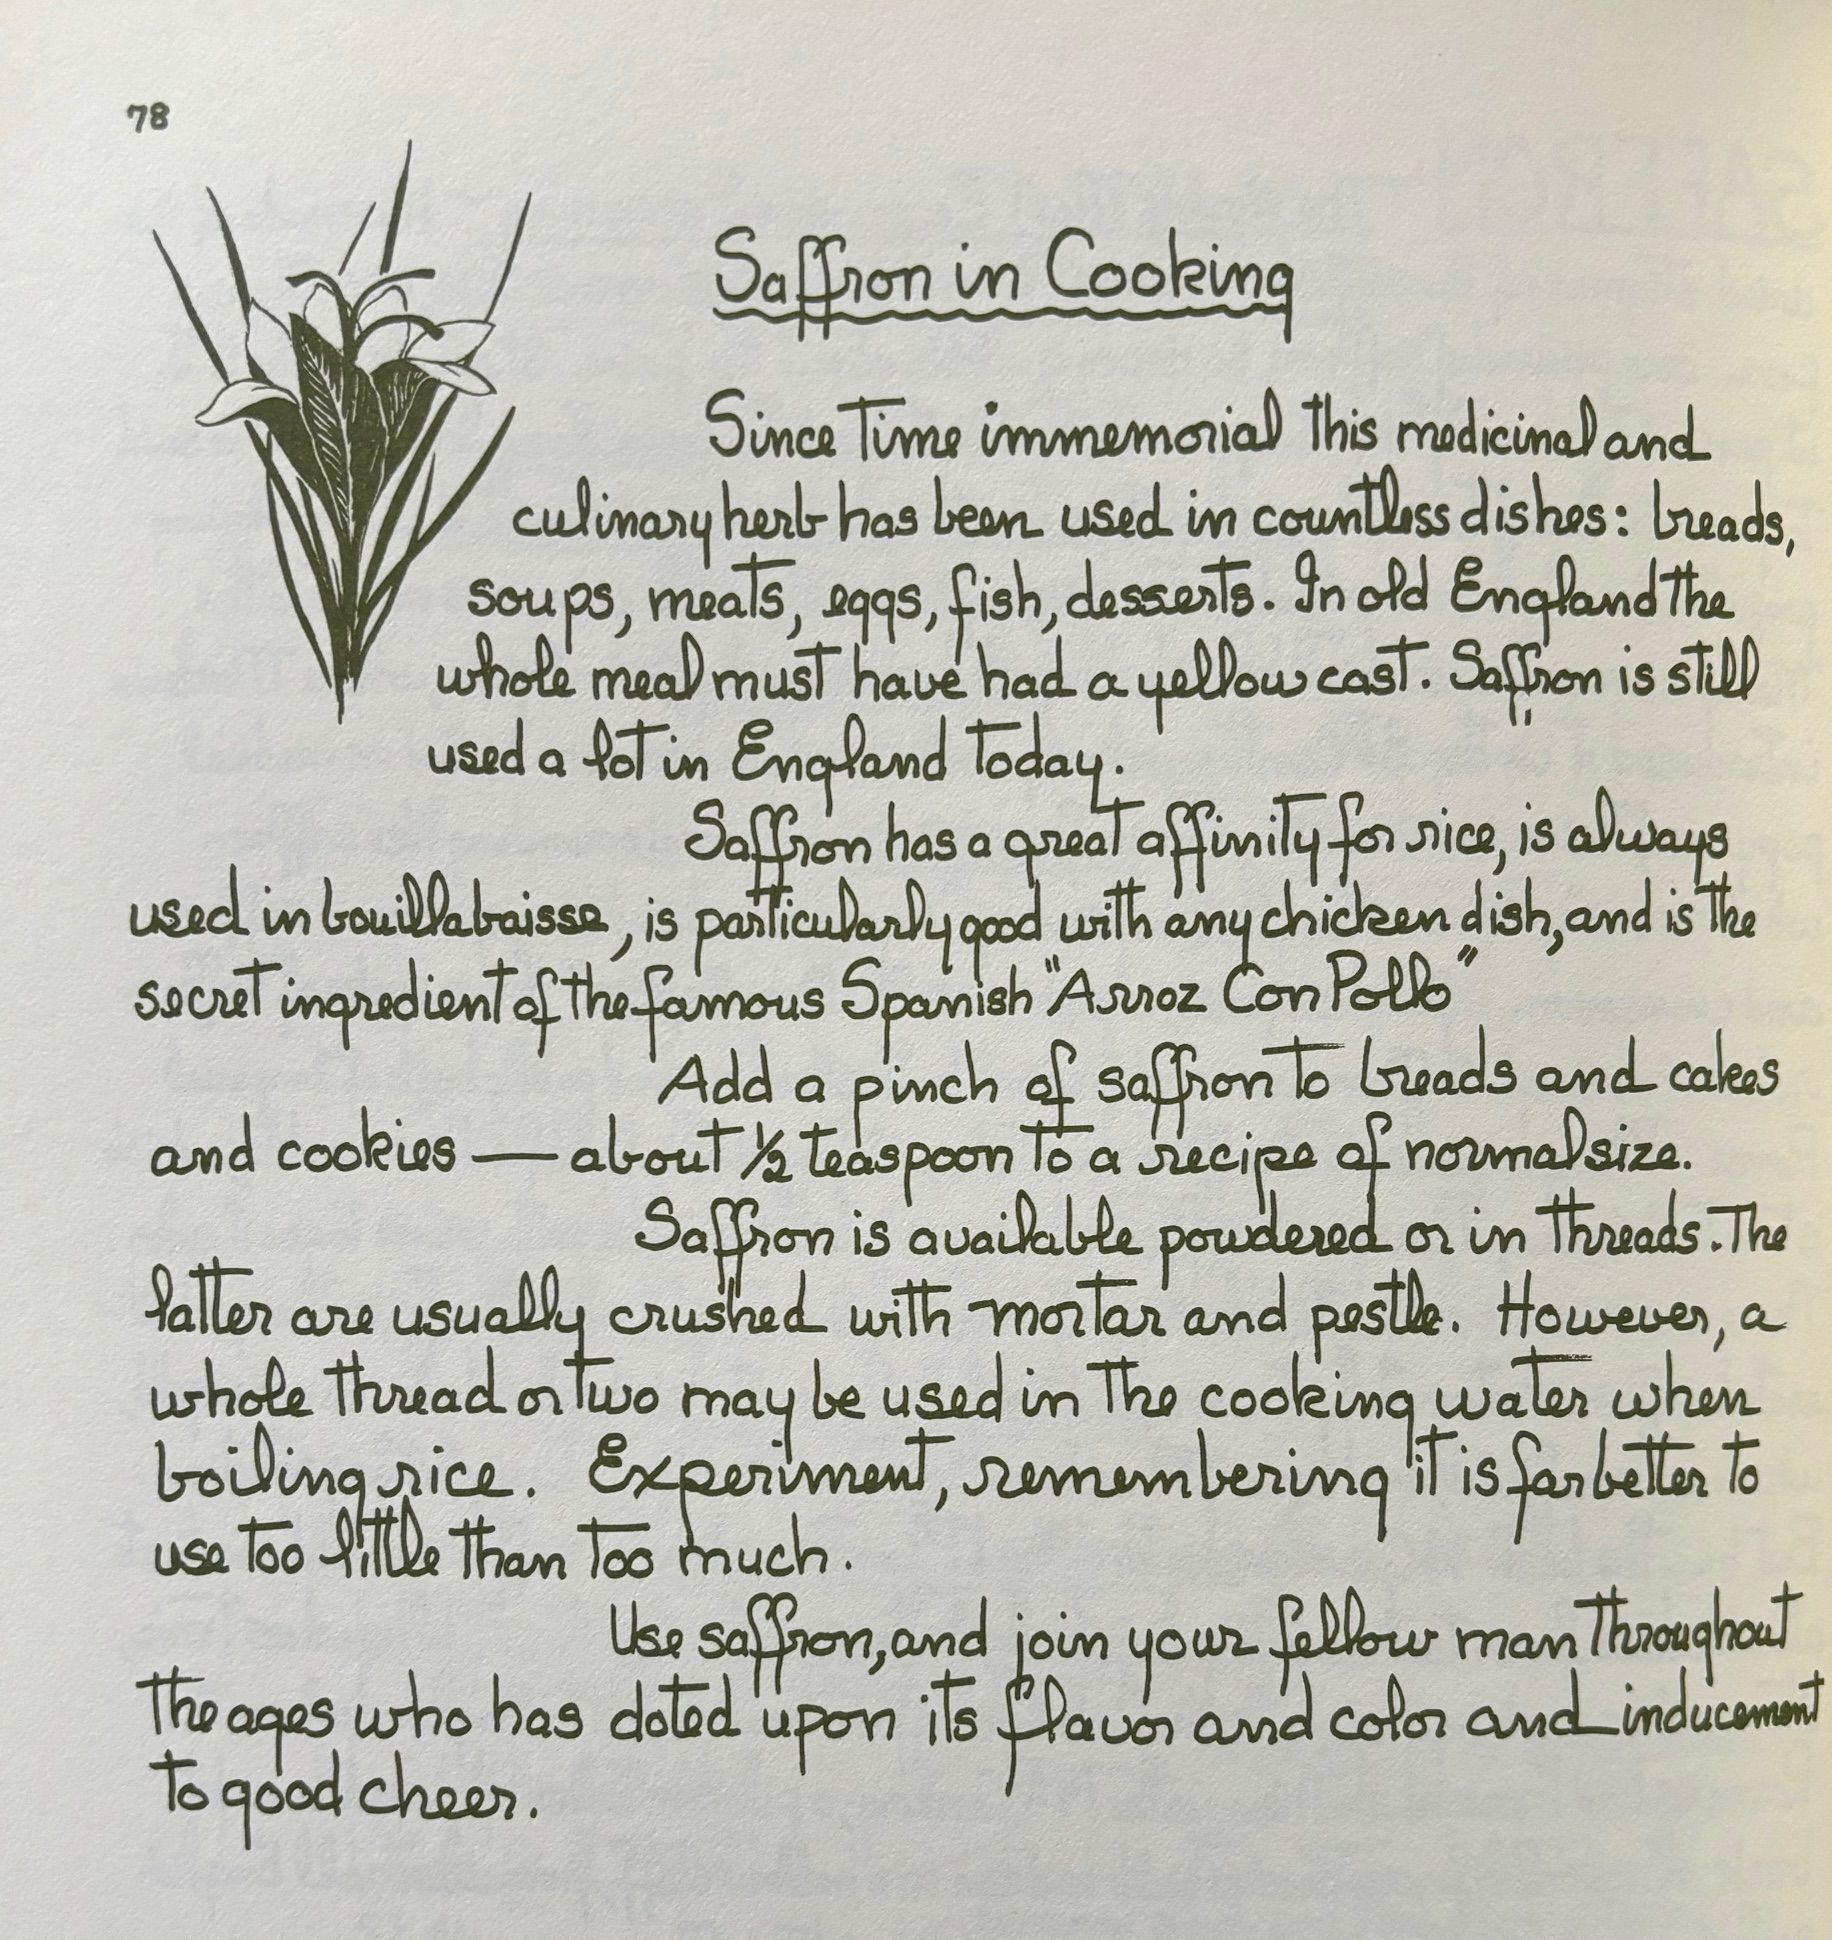 78
Saffron in Cooking
Since Time immemorial this medicinal and
culinary herb has been used in countless dishes: breads,
soups, meats, eggs, fish, desserts. In old England the
whole meal must have had a yellow cast. Saffron is still
used a lot in England today.
Saffron has a great affinity for rice, is always
used in bouillabaisse, is particularly good with any chicken dish, and is the
secret ingredient of the famous Spanish "Arroz Con Pollo"
Add a pinch of saffron to breads and cakes
and cookies — about ½ teaspoon to a recipe of normal size.
Saffron is available powdered or in threads. The
latter are usually crushed with mortar and pestle. However, a
whole thread or two may be used in the cooking water when
boiling rice. Experiment, remembering it is far better to
use too little than too much.
Use saffron, and join your fellow man throughout
the ages who has doted upon its flavor and color and inducement
to good cheer.